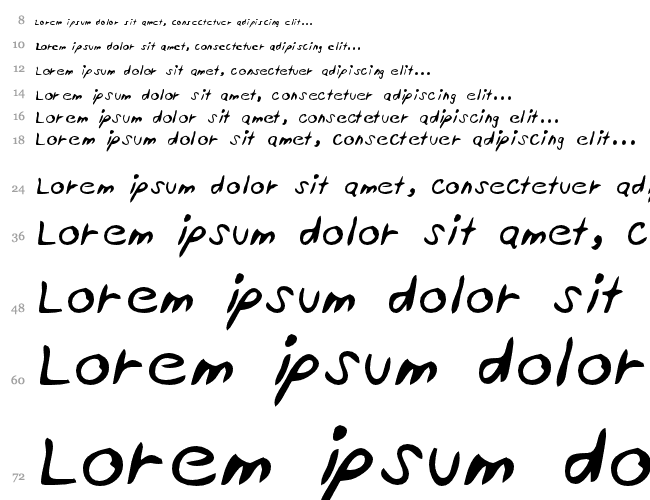 8 Lorem ipsum dolor sit amet, consectetuer adipiscing elit...
10 Lorem ipsum dolor sit amet, consectetuer adipiscing elit...
12 Lorem ipsum dolor sit amet, consectetuer adipiscing elit...
14 Lorem ipsum dolor sit amet, consectetuer adipiscing elit...
16 Lorem ipsum dolor sit amet, consectetuer adipiscing elit...
18 Lorem ipsum dolor sit amet, consectetuer adipiscing elit...
24 Lorem ipsum dolor sit amet, consectetuer ad
36 Lorem ipsum dolor sit amet, c
48 Lorem ipsum dolor sit
60 Lorem ipsum dolor
72 Lorem ipsum do